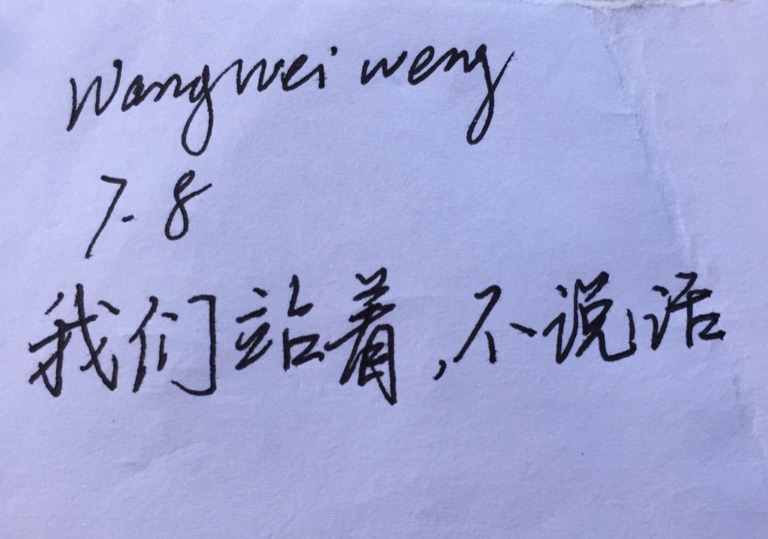 Wangwei weng
7.8
我们站着,不说话